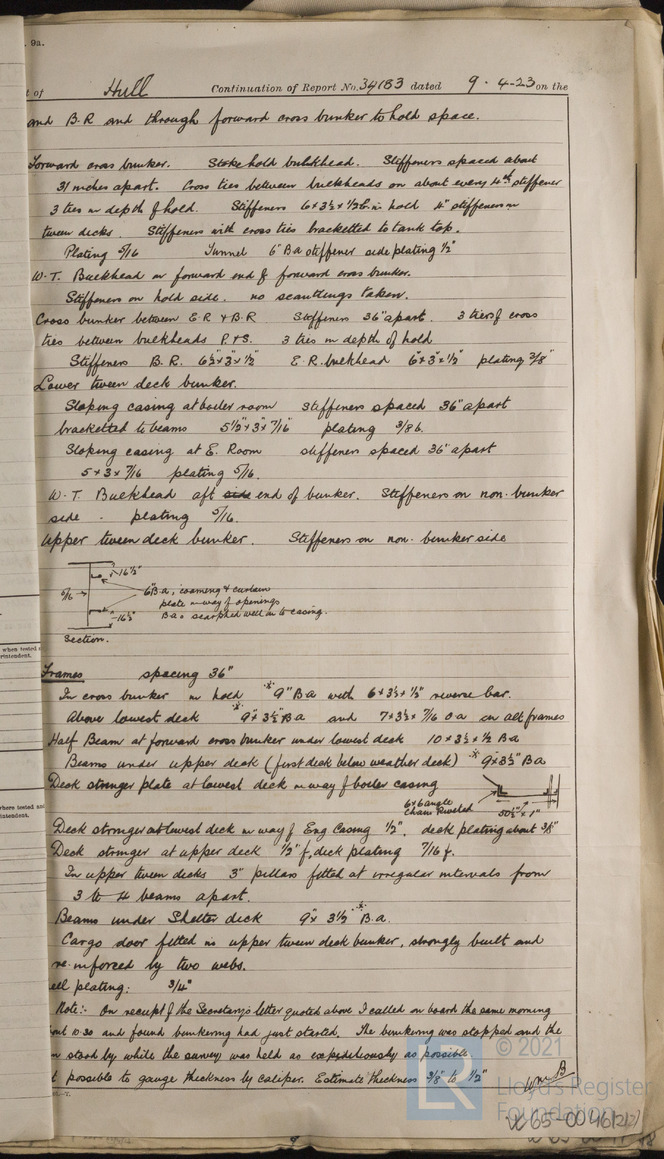 9a.
t of Hull Continuation of Report No. 34183 dated 9. 4-23 on the
and B.R and through forward cross bunker to hold space.
Forward cross bunker. Stokehold bulkhead. Stiffeners spaced about
31 inches apart. Cross ties between bulkheads on about every 4th stiffener
3 ties in depth of hold. Stiffeners 6 x 3½ x ½ in hold 4" stiffeners in
tween decks. Stiffeners with cross ties bracketted to tank top.
Plating 5/16 Tunnel 6" Ba stiffener side plating ½"
W.T. Bulkhead on forward end of forward cross bunker.
Stiffeners on hold side. no scantlings taken.
Cross bunker between E.R & B.R Stiffeners 36" apart. 3 tiers of cross
ties between bulkheads P.&S. 3 ties in depth of hold
Stiffeners B.R. 6½ x 3" x ½" E.R. bulkhead 6" x 3" x ½" plating 3/8"
Lower tween deck bunker.
Sloping casing at boiler room stiffeners spaced 36" apart
bracketted to beams 5½" x 3" x 7/16" plating 3/8 b.
Sloping casing at E. Room stiffeners spaced 36" apart
5 x 3 x 7/16 plating 5/16.
W.T. Bulkhead aft side end of bunker. Stiffeners on non-bunker
side. plating 5/16.
Upper tween deck bunker. Stiffeners on non-bunker side
16½"
5/16 6" Ba, coaming & curtain
plate in way of openings
16½" Ba's scarphed well in to casing.
Section.
Frames spacing 36"
In cross bunker in hold 9" Ba with 6 x 3½ x ½" reverse bar.
Above lowest deck 9" x 3½" Ba and 7 x 3½ x 7/16 Oa on alt frames
Half Beam at forward cross bunker under lowest deck 10 x 3½ x ½ Ba
Beams under upper deck (first deck below weather deck) 9" x 3½" Ba
Deck stringer plate at lowest deck in way of boiler casing
6 x 6 angle
Chain Riveted 50½" x 1"
Deck stringer at lowest deck in way of Eng Casing ½". deck plating about 3/8"
Deck stringer at upper deck ½" f, deck plating 7/16 f.
In upper tween decks 3" pillars fitted at irregular intervals from
3 to 4 beams apart.
Beams under Shelter deck 9" x 3½" B.a.
Cargo door fitted in upper tween deck bunker, strongly built and
re-inforced by two webs.
ell plating: 3/4"
Note:- On receipt of the Secretary's letter quoted above I called on board the same morning
out 10.30 and found bunkering had just started. The bunkering was stopped and the
n stood by while the survey was held as expeditiously as possible.
t possible to gauge thickness by caliper. Estimate thickness 3/8" to ½"
Wm B
when tested
rintendent.
where tested and
intendent.
© 2021
Lloyd's Register
Foundation
W65-0046(2/2)